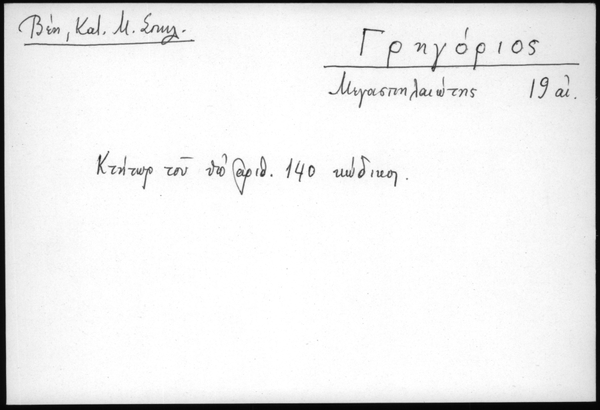 Βέη, Κατ. Μ. Σπηλ.
Γρηγόριος
Μεγασπηλαιώτης 19 αἰ.
Κτήτωρ τοῦ ὑπ' ἀριθ. 140 κώδικος.